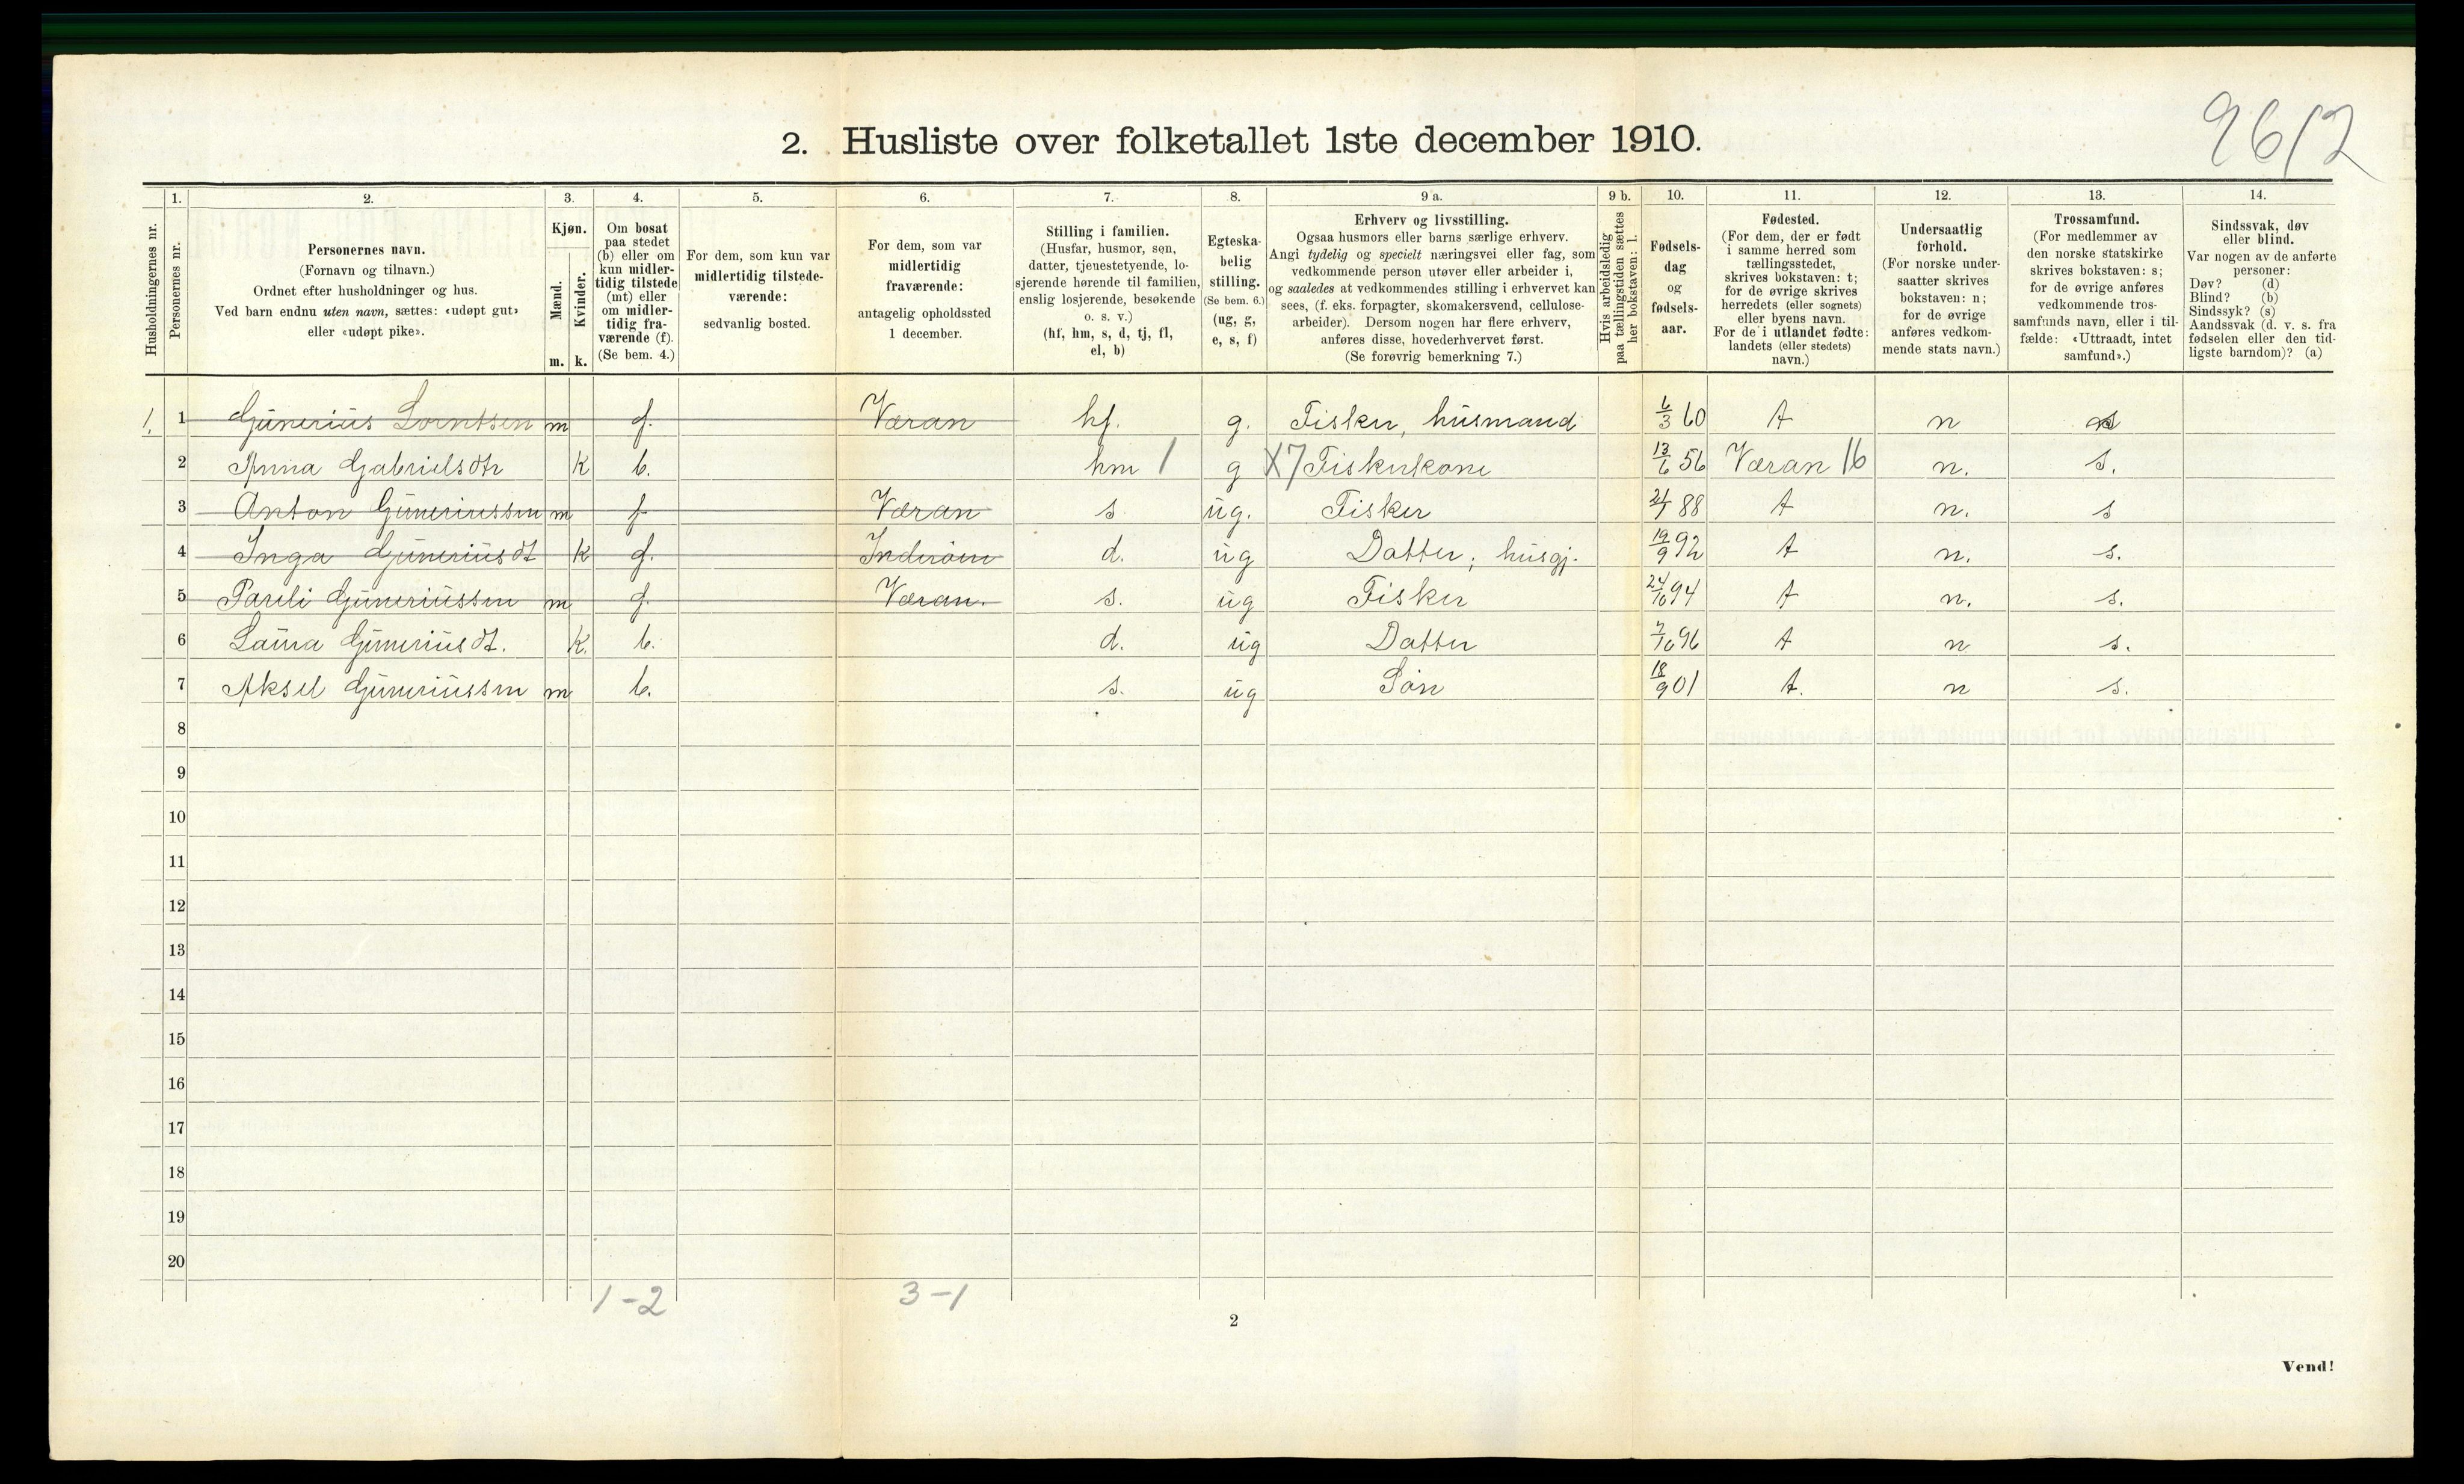 9612
2. Husliste over folketallet 1ste december 1910.
1. 2. 3. 4. 5. 6. 7. 8. 9 a. 9 b. 10. 11. 12. 13. 14.
Husholdningernes nr.
Personernes nr.
Personernes navn.
(Fornavn og tilnavn.)
Ordnet efter husholdninger og hus.
Ved barn endnu uten navn, sættes: «udøpt gut»
eller «udøpt pike».
Kjøn.
Mænd.
Kvinder.
m. k.
Om bosat
paa stedet
(b) eller om
kun midler-
tidig tilstede
(mt) eller
om midler-
tidig fra-
værende (f).
(Se bem. 4.)
For dem, som kun var
midlertidig tilstede-
værende:
sedvanlig bosted.
For dem, som var
midlertidig
fraværende:
antagelig opholdssted
1 december.
Stilling i familien.
(Husfar, husmor, søn,
datter, tjenestetyende, lo-
sjerende hørende til familien,
enslig losjerende, besøkende
o. s. v.)
(hf, hm, s, d, tj, fl,
el, b)
Egteska-
belig
stilling.
(Se bem. 6.)
(ug, g,
e, s, f)
Erhverv og livsstilling.
Ogsaa husmors eller barns særlige erhverv.
Angi tydelig og specielt næringsvei eller fag, som
vedkommende person utøver eller arbeider i,
og saaledes at vedkommendes stilling i erhvervet kan
sees, (f. eks. forpagter, skomakersvend, cellulose-
arbeider). Dersom nogen har flere erhverv,
anføres disse, hovederhvervet først.
(Se forøvrig bemerkning 7.)
Hvis arbeidsledig
paa tællingstiden sættes
her bokstaven: l.
Fødsels-
dag
og
fødsels-
aar.
Fødested.
(For dem, der er født
i samme herred som
tællingsstedet,
skrives bokstaven: t;
for de øvrige skrives
herredets (eller sognets)
eller byens navn.
For de i utlandet fødte:
landets (eller stedets)
navn.)
Undersaatlig
forhold.
(For norske under-
saatter skrives
bokstaven: n;
for de øvrige
anføres vedkom-
mende stats navn.)
Trossamfund.
(For medlemmer av
den norske statskirke
skrives bokstaven: s;
for de øvrige anføres
vedkommende tros-
samfunds navn, eller i til-
fælde: «Uttraadt, intet
samfund».)
Sindssvak, døv
eller blind.
Var nogen av de anførte
personer:
Døv? (d)
Blind? (b)
Sindssyk? (s)
Aandssvak (d. v. s. fra
fødselen eller den tid-
ligste barndom)? (a)
1. 1 Günerius Lorntsen m f. Væran hf. g. Fisker, husmand 6/3 60 t n s
2 Anna Gabrielsdtr k b. hm 1 g X7 Fiskerkone 13/6 56 Væran 16 n. s.
3 Anton Güneriussen m f Væran s ug. Fisker 88 t n. s
4 Inga Güneriusdt k f. Inderöen d. ug Datter; husgj. 19/9 92 t n. s.
5 Pareli Güneriussen m f. Væran. s. ug Fisker 24/10 94 t n. s.
6 Laura Güneriusdt. k. b. d. ug Datter 7/10 96 t n s.
7 Aksel Güneriussen m b. s. ug Sön 18/9 01 t. n s.
8
9
10
11
12
13
14
15
16
17
18
19
20
1-2 3-1
2
Vend!